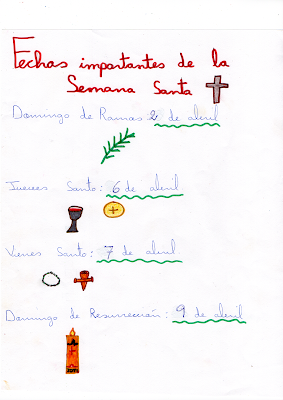 Fechas importantes de la
Semana Santa
Domingo de Ramas 2 de abril
Jueves Santo: 6 de abril
Viernes Santo: 7 de abril
Domingo de Resurrección: 9 de abril